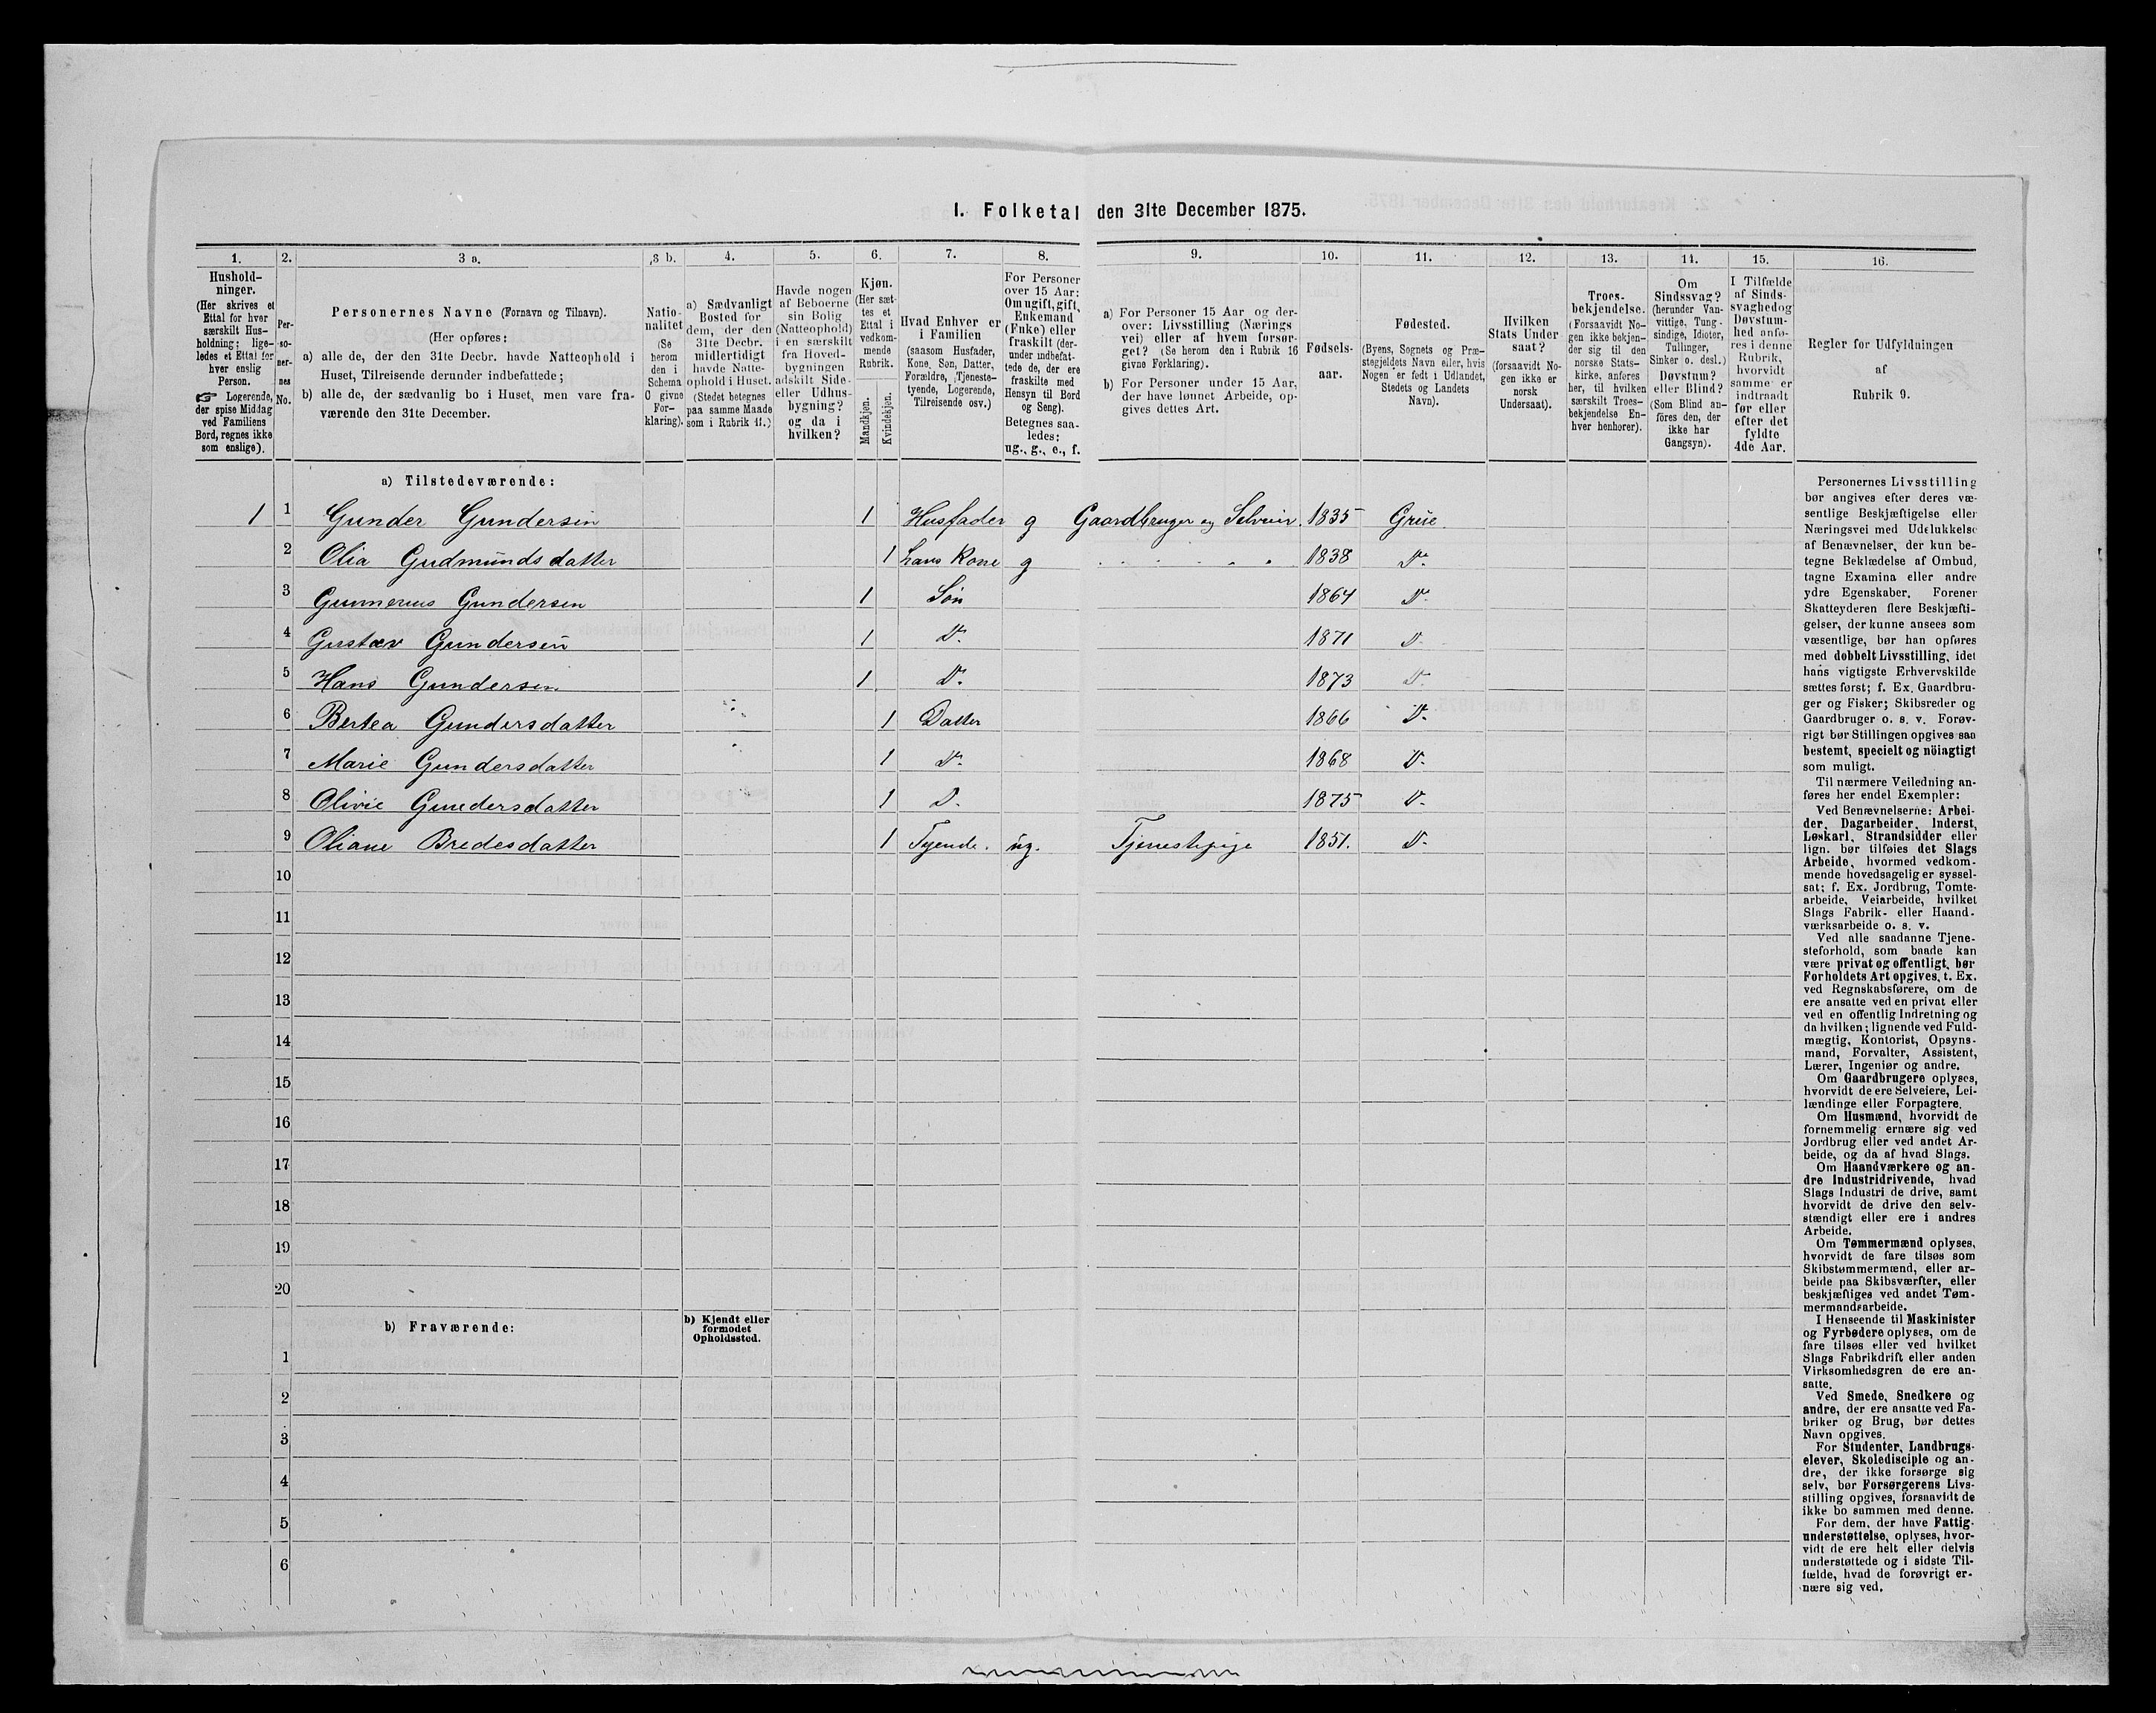 I. Folketal den 31te December 1875.
1. 2. 3 a. 3 b. 4. 5. 6. 7. 8. 9. 10. 11. 12. 13. 14. 15. 16.
Hushold-
ninger.
(Her skrives et
Ettal for hver
særskilt Hus-
holdning; lige-
ledes et Ettal for
hver enslig
Person.
☞ Logerende,
der spise Middag
ved Familiens
Bord, regnes ikke
som enslige).
Per-
so-
ner-
nes
No.
Personernes Navne (Fornavn og Tilnavn).
(Her opføres:
a) alle de, der den 31te Decbr. havde Natteophold i
Huset, Tilreisende derunder indbefattede;
b) alle de, der sædvanlig bo i Huset, men vare fra-
værende den 31te December.
Natio-
nalitet
(Se
herom
den i
Schema
C givne
For-
klaring).
a) Sædvanligt
Bosted for
dem, der den
31te Decbr.
midlertidigt
havde Natte-
ophold i Huset.
(Stedet betegnes
paa samme Maade
som i Rubrik 11.)
Havde nogen
af Beboerne
sin Bolig
(Natteophold)
i en særskilt
fra Hoved-
bygningen
adskilt Side-
eller Udhus-
bygning?
og da i
hvilken?
Kjøn.
(Her sæt-
tes et
Ettal i
vedkom-
mende
Rubrik.
Mandkjøn.
Kvindekjøn.
Hvad Enhver er
i Familien
(saasom Husfader,
Kone, Søn, Datter,
Forældre, Tjeneste-
tyende, Logerende,
Tilreisende osv.)
For Personer
over 15 Aar:
Om ugift, gift,
Enkemand
(Enke) eller
fraskilt (der-
under indbefat-
tede de, der ere
fraskilte med
Hensyn til Bord
og Seng).
Betegnes saa-
ledes:
ug., g., e., f.
a) For Personer 15 Aar og der-
over: Livsstilling (Nærings
vei) eller af hvem forsør-
get? (Se herom den i Rubrik 16
givne Forklaring).
b) For Personer under 15 Aar,
der have lønnet Arbeide, op-
gives dettes Art.
Fødsels-
aar.
Fødested.
(Byens, Sognets og Præ-
stegjeldets Navn eller, hvis
Nogen er født i Udlandet,
Stedets og Landets
Navn).
Hvilken
Stats Under
saat?
(forsaavidt No-
gen ikke er
norsk
Undersaat).
Troes-
bekjendelse.
(Forsaavidt No-
gen ikke bekjen-
der sig til den
norske Stats-
kirke, anføres
her, til hvilken
særskilt Troes-
bekjendelse En-
hver henhører).
Om
Sindssvag?
(herunder Van-
vittige, Tung-
sindige, Idioter,
Tullinger,
Sinker o. desl.)
Døvstum?
eller Blind?
(Som Blind an-
føres den, der
ikke har
Gangsyn).
I Tilfælde
af Sinds-
svaghed og
Døvstum-
hed anfø-
res i denne
Rubrik,
hvorvidt
samme er
indtraadt
før eller
efter det
fyldte
4de Aar.
Regler for Udfyldningen
af
Rubrik 9.
a) Tilstedeværende:
1 1 Gunder Gundersen 1 Husfader g Gaardbruger og Selveier. 1835 Grue.
2 Olia Gudmundsdatter 1 hans Kone g 1838 Do.
3 Gunnerius Gundersen 1 Søn 1864 Do.
4 Gustav Gundersen 1 Do. 1871 Do.
5 Hans Gundersen 1 Do. 1873 Do.
6 Bertea Gundersdatter 1 Datter 1866 Do.
7 Marie Gundersdatter 1 Do. 1868 Do.
8 Olivie Gundersdatter 1 Do. 1875 Do.
9 Oliane Bredesdatter 1 Tyende. ug. Tjenestepige 1851. Do.
10
11
12
13
14
15
16
17
18
19
20
b) Fraværende:
b) Kjendt eller
formodet
Opholdssted.
1
2
3
4
5
6
Personernes Livsstilling
bør angives efter deres væ-
sentlige Beskjæftigelse eller
Næringsvei med Udelukkelse
af Benævnelser, der kun be-
tegne Beklædelse af Ombud,
tagne Examina eller andre
ydre Egenskaber. Forener
Skatteyderen flere Beskjæfti-
gelser, der kunne ansees som
væsentlige, bør han opføres
med dobbelt Livsstilling, idet
hans vigtigste Erhvervskilde
sættes først; f. Ex. Gaardbru-
ger og Fisker; Skibsreder og
Gaardbruger o. s. v. Forøv-
rigt bør Stillingen opgives saa
bestemt, specielt og nöiagtigt
som muligt.
Til nærmere Veiledning an-
føres her endel Exempler:
Ved Benævnelserne: Arbei-
der, Dagarbeider, Inderst,
Løskarl, Strandsidder eller
lign. bør tilføies det Slags
Arbeide, hvormed vedkom-
mende hovedsagelig er syssel-
sat; f. Ex. Jordbrug, Tomte-
arbeide, Veiarbeide, hvilket
Slags Fabrik- eller Haand-
værksarbeide o. s. v.
Ved alle saadanne Tjene-
steforhold, som baade kan
være privat og offentligt, bør
Forholdets Art opgives, t. Ex.
ved Regnskabsførere, om de
ere ansatte ved en privat eller
ved en offentlig Indretning og
da hvilken; lignende ved Fuld-
mægtig, Kontorist, Opsyns-
mand, Forvalter, Assistent,
Lærer, Ingeniør og andre.
Om Gaardbrugere oplyses,
hvorvidt de ere Selveiere, Lei-
lændinge eller Forpagtere.
Om Husmænd, hvorvidt de
fornemmelig ernære sig ved
Jordbrug eller ved andet Ar-
beide, og da af hvad Slags.
Om Haandværkere og an-
dre Industridrivende, hvad
Slags Industri de drive, samt
hvorvidt de drive den selv-
stændigt eller ere i andres
Arbeide.
Om Tømmermænd oplyses,
hvorvidt de fare tilsøs som
Skibstømmermænd, eller ar-
beide paa Skibsværfter, eller
beskjæftiges ved andet Tøm-
mermandsarbeide.
I Henseende til Maskinister
og Fyrbødere oplyses, om de
fare tilsøs eller ved hvilket
Slags Fabrikdrift eller anden
Virksomhedsgren de ere an-
satte.
Ved Smede, Snedkere og
andre, der ere ansatte ved Fa-
briker og Brug, bør dettes
Navn opgives.
For Studenter, Landbrugs-
elever, Skoledisciple og an-
dre, der ikke forsørge sig
selv, bør Forsørgerens Livs-
stilling opgives, forsaavidt de
ikke bo sammen med denne.
For dem, der have Fattig-
understøttelse, oplyses, hvor-
vidt de ere helt eller delvis
understøttede og i sidste Til-
fælde, hvad de forøvrigt er-
nære sig ved.